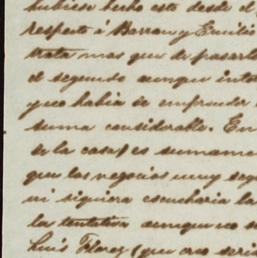 hubiese hecho esto desde el
respecto á Barron y Emilio
trata mas que de pasarlo
el segundo aunque
que habia de emprender
suma considerable. En
de la casa) es sumame
que los negocios muy seg
ni siquiera escucharia la
la tentativa aunque no s
Luis Florez (que creo seria